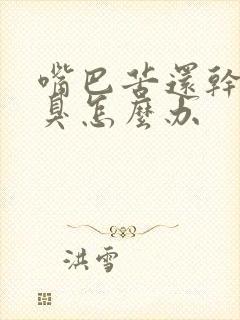 嘴巴苦還幹
臭怎麼办
洪雪